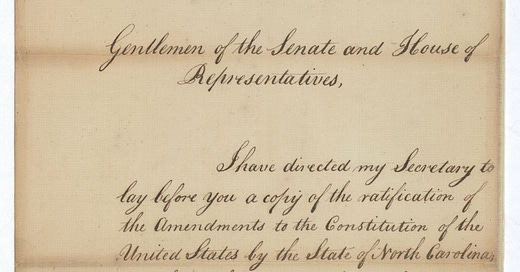 Gentlemen of the Senate and House of
Representatives,
I have directed my Secretary to
lay before you a copy of the ratification of
the Amendments to the Constitution of the
United States by the State of North Carolina,